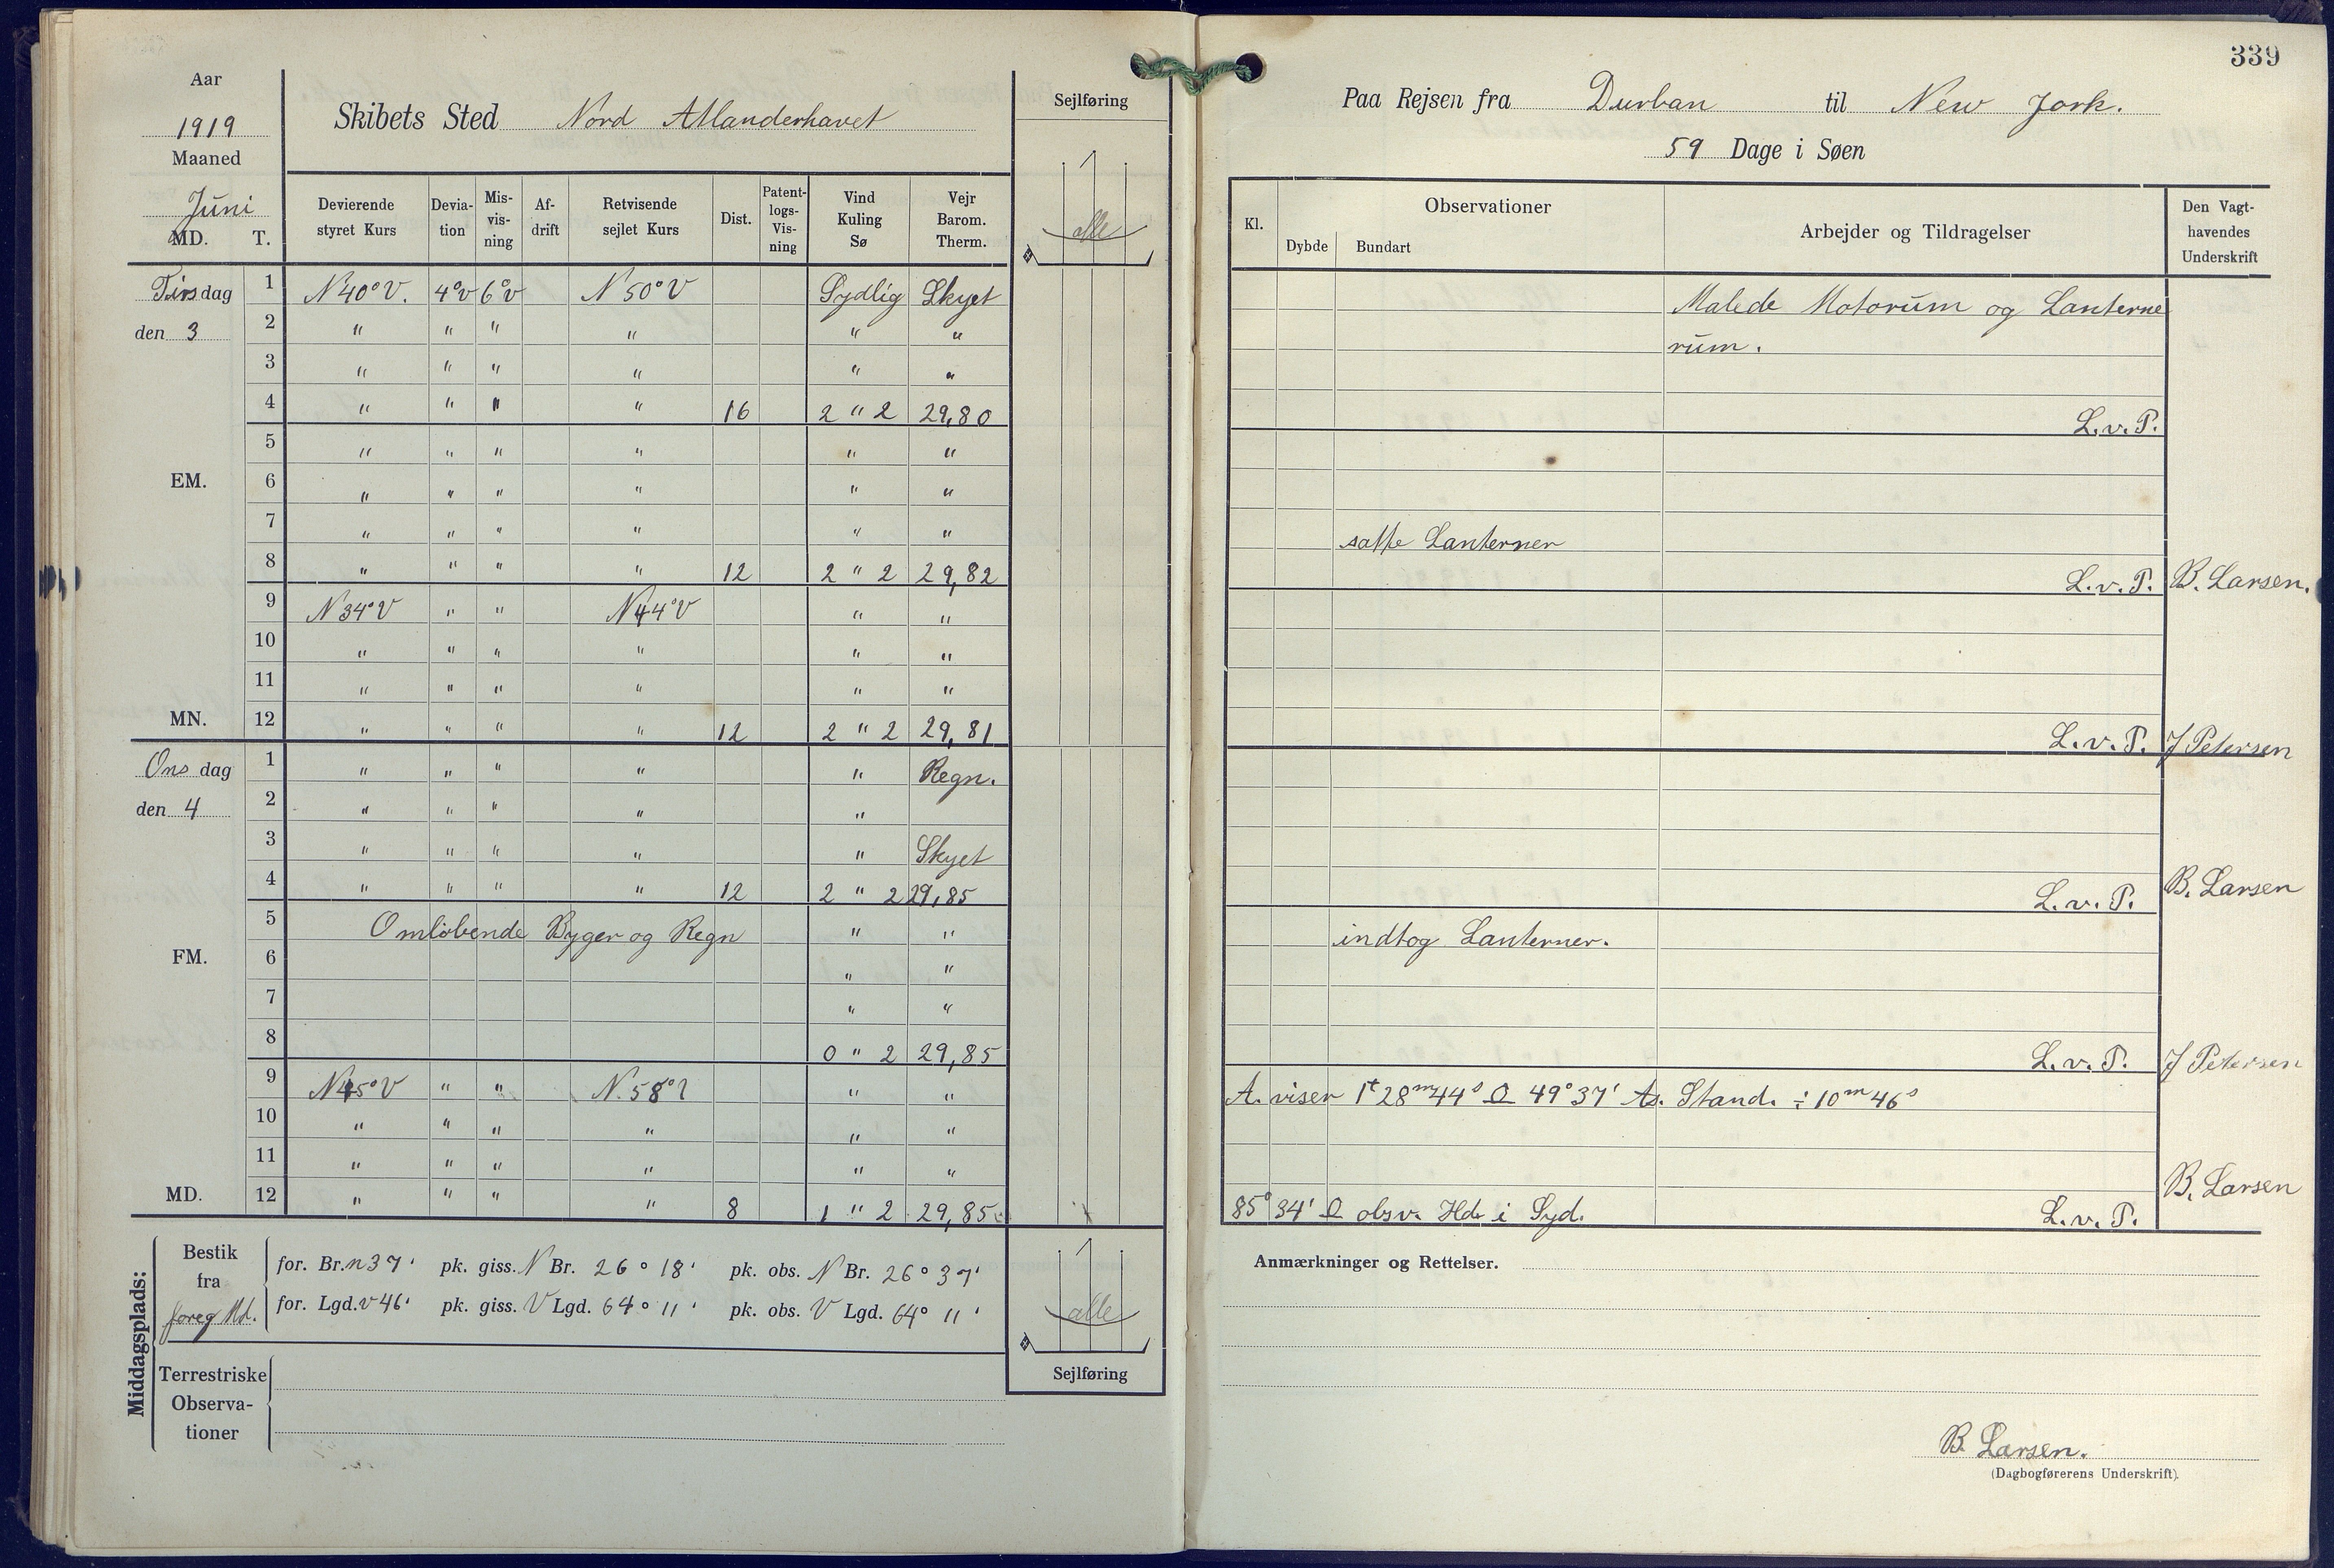 339
Aar
1919
Maaned
Juni
MD. T.
Skibets Sted Nord Atlanderhavet
Sejlføring
alle
Paa Rejsen fra Durban til New Jork.
59 Dage i Søen
Devierende styret Kurs
Devia-tion
Mis-vis-ning
Af-drift
Retvisende sejlet Kurs
Dist.
Patent-logs-Vis-ning
Vind Kuling Sø
Vejr Barom. Therm.
Kl.
Observationer
Dybde Bundart
Arbejder og Tildragelser
Den Vagt-havendes Underskrift
Tirsdag 1 N40°V. 4°V 6°V N 50°V Sydlig Skyet
den 3 2 " " " " " "
3 " " " " " "
4 " " " " 16 2 " 2 29,80
5 " " " " " "
EM. 6 " " " " " "
7 " " " " " "
8 " " " " 12 2 " 2 29,82
9 N34°V " " N44°V " "
10 " " " " " "
11 " " " " " "
MN. 12 " " " " 12 2 " 2 29,81
Onsdag 1 " " " " " Regn.
den 4 2 " " " " "
3 " " " " " Skyet
4 " " " " 12 2 " 2 29,85
5 Omløbende Byger og Regn " "
FM. 6 " "
7 " "
8 0 " 2 29,85
9 N45°V " " N.58° " "
10 " " " " " "
11 " " " " " "
MD. 12 " " " " 8 1 " 2 29,85
Malede Motorum og Lanterne
rum.
L.v.P.
satte Lanterner
L.v.P. B. Larsen.
L.v.P. J Petersen
L.v.P. B. Larsen
indtog Lanterner.
L.v.P. J Petersen
A. viser 1t 28m 44s 49° 37' Stand. ÷ 10m 46s
B. Larsen
85° 34' obsv. Hd. i Syd. L.v.P.
Middagsplads:
Bestik fra foreg Md.
for. Br. n 37' pk. giss. N Br. 26° 18' pk. obs. N Br. 26° 37'
for. Lgd. v 46' pk. giss. V Lgd. 64° 11' pk. obs. V Lgd. 64° 11'
Terrestriske Observa-tioner
alle
Sejlføring
Anmærkninger og Rettelser.
B. Larsen.
(Dagbogførerens Underskrift).